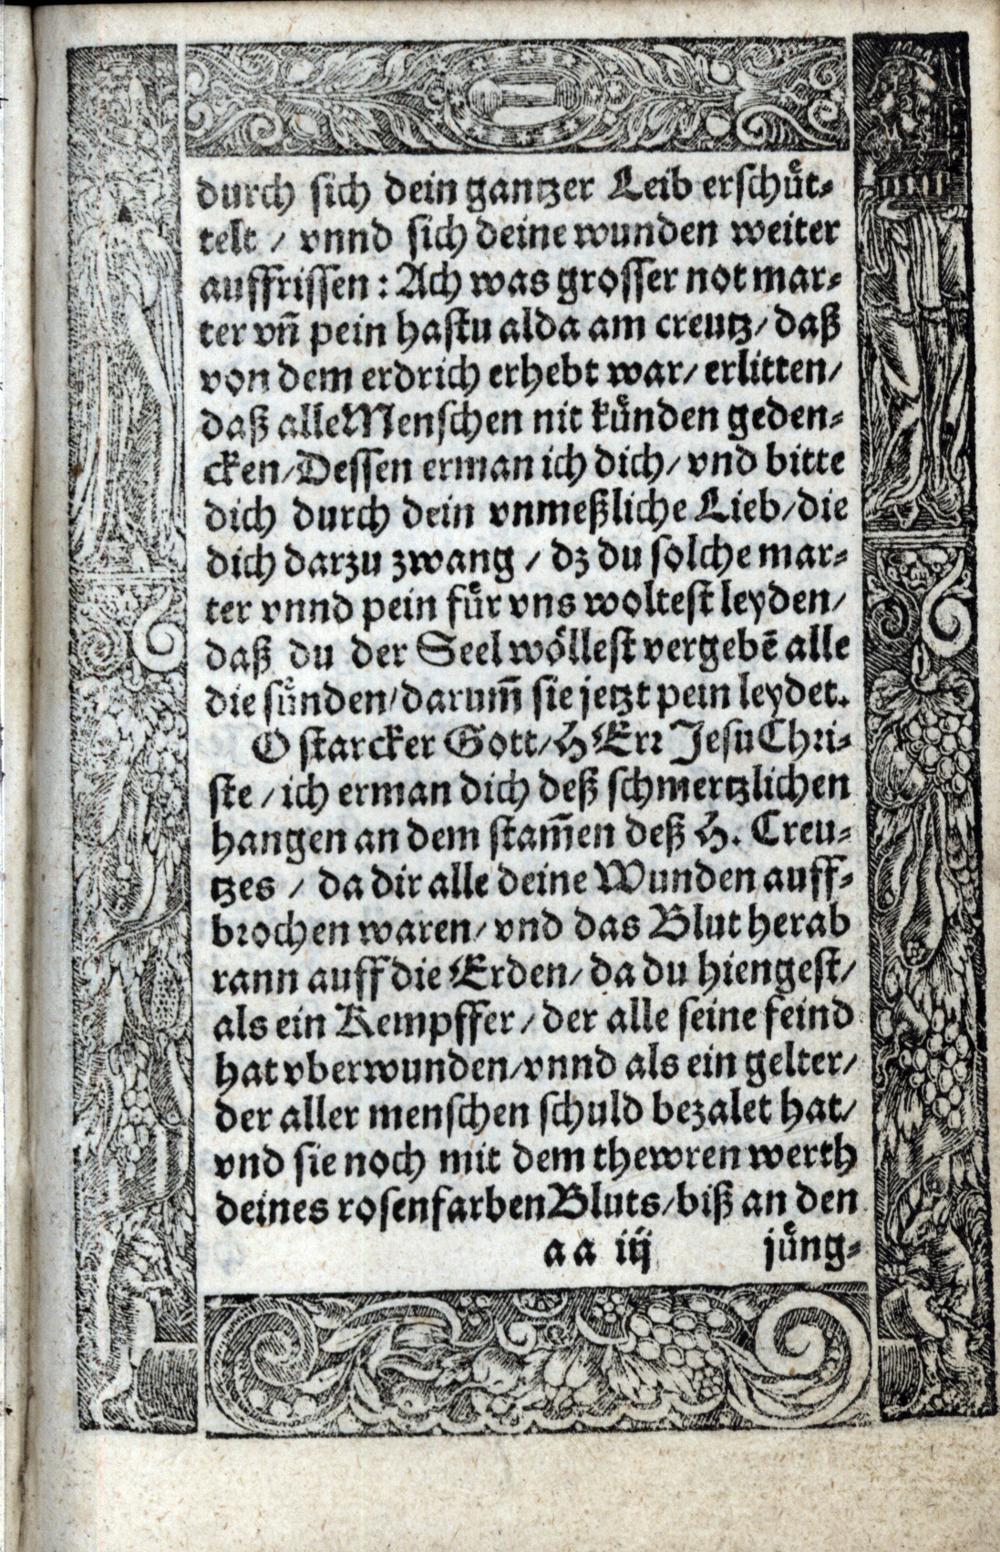 durch sich dein gantzer Leib erschuͤt⸗
telt / vnnd sich deine wunden weiter
auffrissen: Ach was grosser not mar⸗
ter vñ pein hastu alda am creutz/ daß
von dem erdrich erhebt war/ erlitten/
daß alle Menschen nit kuͤnden geden⸗
cken/ Dessen erman ich dich/ vnd bitte
dich durch dein vnmeßliche Lieb/ die
dich darzu zwang / dz du solche mar⸗
ter vnnd pein fuͤr vns woltest leyden/
daß du der Seel woͤllest vergebẽ alle
die suͤnden/ darum̃ sie jetzt pein leydet.
O starcker Gott/ HErr Jesu Chri⸗
ste / ich erman dich deß schmertzlichen
hangen an dem stam̃en deß H. Creu⸗
tzes / da dir alle deine Wunden auff⸗
brochen waren/ vnd das Blut herab
rann auff die Erden/ da du hiengest/
als ein Kempffer / der alle seine feind
hat vberwunden/ vnnd als ein gelter/
der aller menschen schuld bezalet hat/
vnd sie noch mit dem thewren werth
deines rosenfarben Bluts/ biß an den
aa iij juͤng⸗